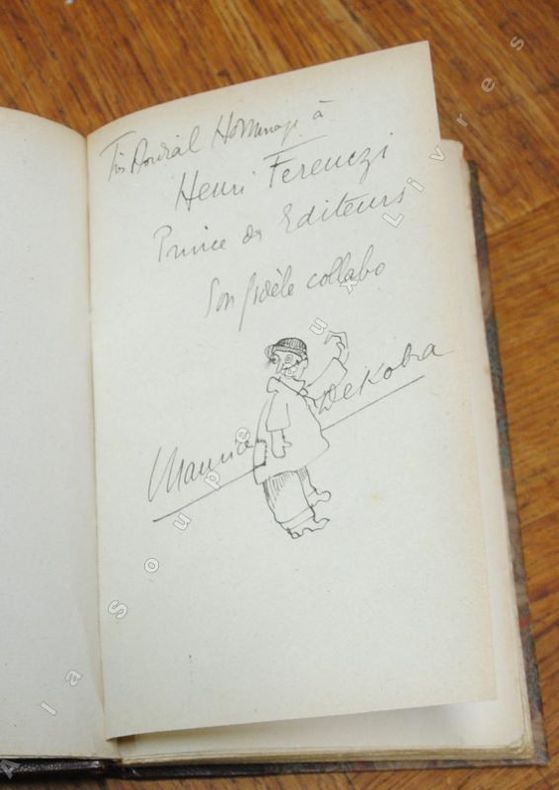 Très Amical Hommage à
Henri Ferenczi
Prince des Editeurs
Son fidèle collabo
Maurice Dekobra
A la Soupe aux Livres